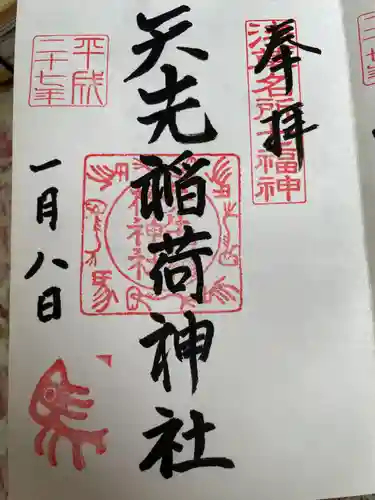 奉拝
浅草名所七福神
矢先稲荷神社
平成
二十七年
一月八日